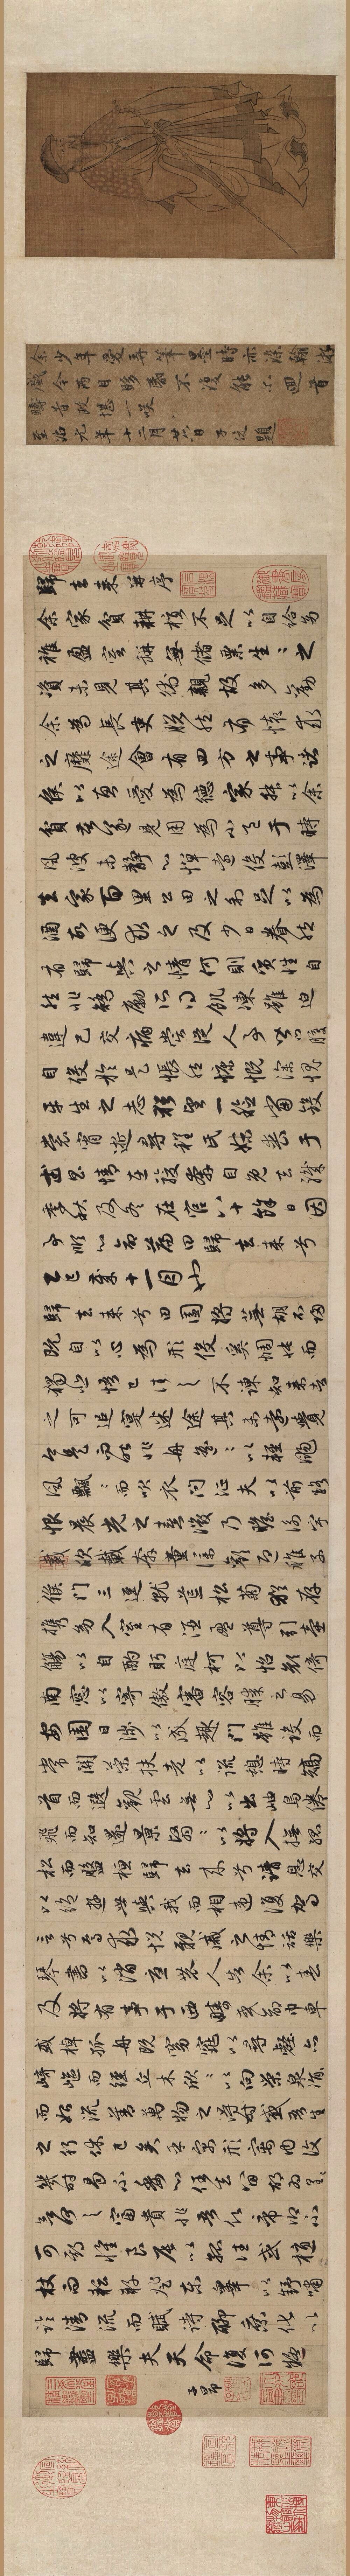 余少年愛弄筆墨時亦染翰游
戲今兩目眵昏不復能尔迴首
疇昔政堪一咲
至治元年十二月廿六日子昂題
歸去來并序
余家貧耕植不足以自給幼
稚盈室缾無儲粟生〻之
資未見其術親故多勸
余為長吏脫然有懷求
之靡途會有四方之事諸
侯以惠愛為德家叔以余
貧苦遂見用為小邑于時
風波未靜心憚遠役彭澤
去家百里公田之利足以為
酒故便求之及少日眷然
有歸與之情何則質性自
然非矯勵所得飢凍雖迫
違己交病嘗從人事皆口腹
自役於是悵然慷慨深愧
平生之志猶望一稔當斂
裳宵逝尋程氏妹喪于
武昌情在駿奔自免去職
季秋及冬在官八十餘日因
事順心命篇曰歸去來兮
乙巳歲十一月也
歸去來兮田園將蕪胡不歸
既自以心為形役奚惆悵而
獨悲悟已往之不諫知來者
之可追寔迷途其未遠覺
今是而昨非舟遙〻以輕颺
風飄〻而吹衣問征夫以前路
恨晨光之熹微乃瞻衡宇
載欣載奔童僕歡迎稚子
候門三逕就荒松菊猶存
攜幼入室有酒盈樽引壺
觴以自酌眄庭柯以怡顏倚
南窓以寄傲審容膝之易
安園日涉以成趣門雖設而
常關策扶老以流憩時矯
首而遐觀雲無心以出岫鳥倦
飛而知還景翳〻以將入撫孤
松而盤桓歸去來兮請息交
以絕遊世與我而相違復駕
言兮焉求悅親戚之情話樂
琴書以消憂農人告余以春
及將有事于西疇或命巾車
或棹孤舟既窈窕以尋壑亦
崎嶇而經丘木欣〻以向榮泉涓
而始流善萬物之得時感吾生
之行休已矣乎寓形宇內復
幾時曷不委心任去留胡為遑
欲何之富貴非吾願帝鄉不
可期懷良辰以孤往或植
杖而耘耔登東皋以舒嘯
臨清流而賦詩聊乘化以
歸盡樂夫天命復何疑
子昂